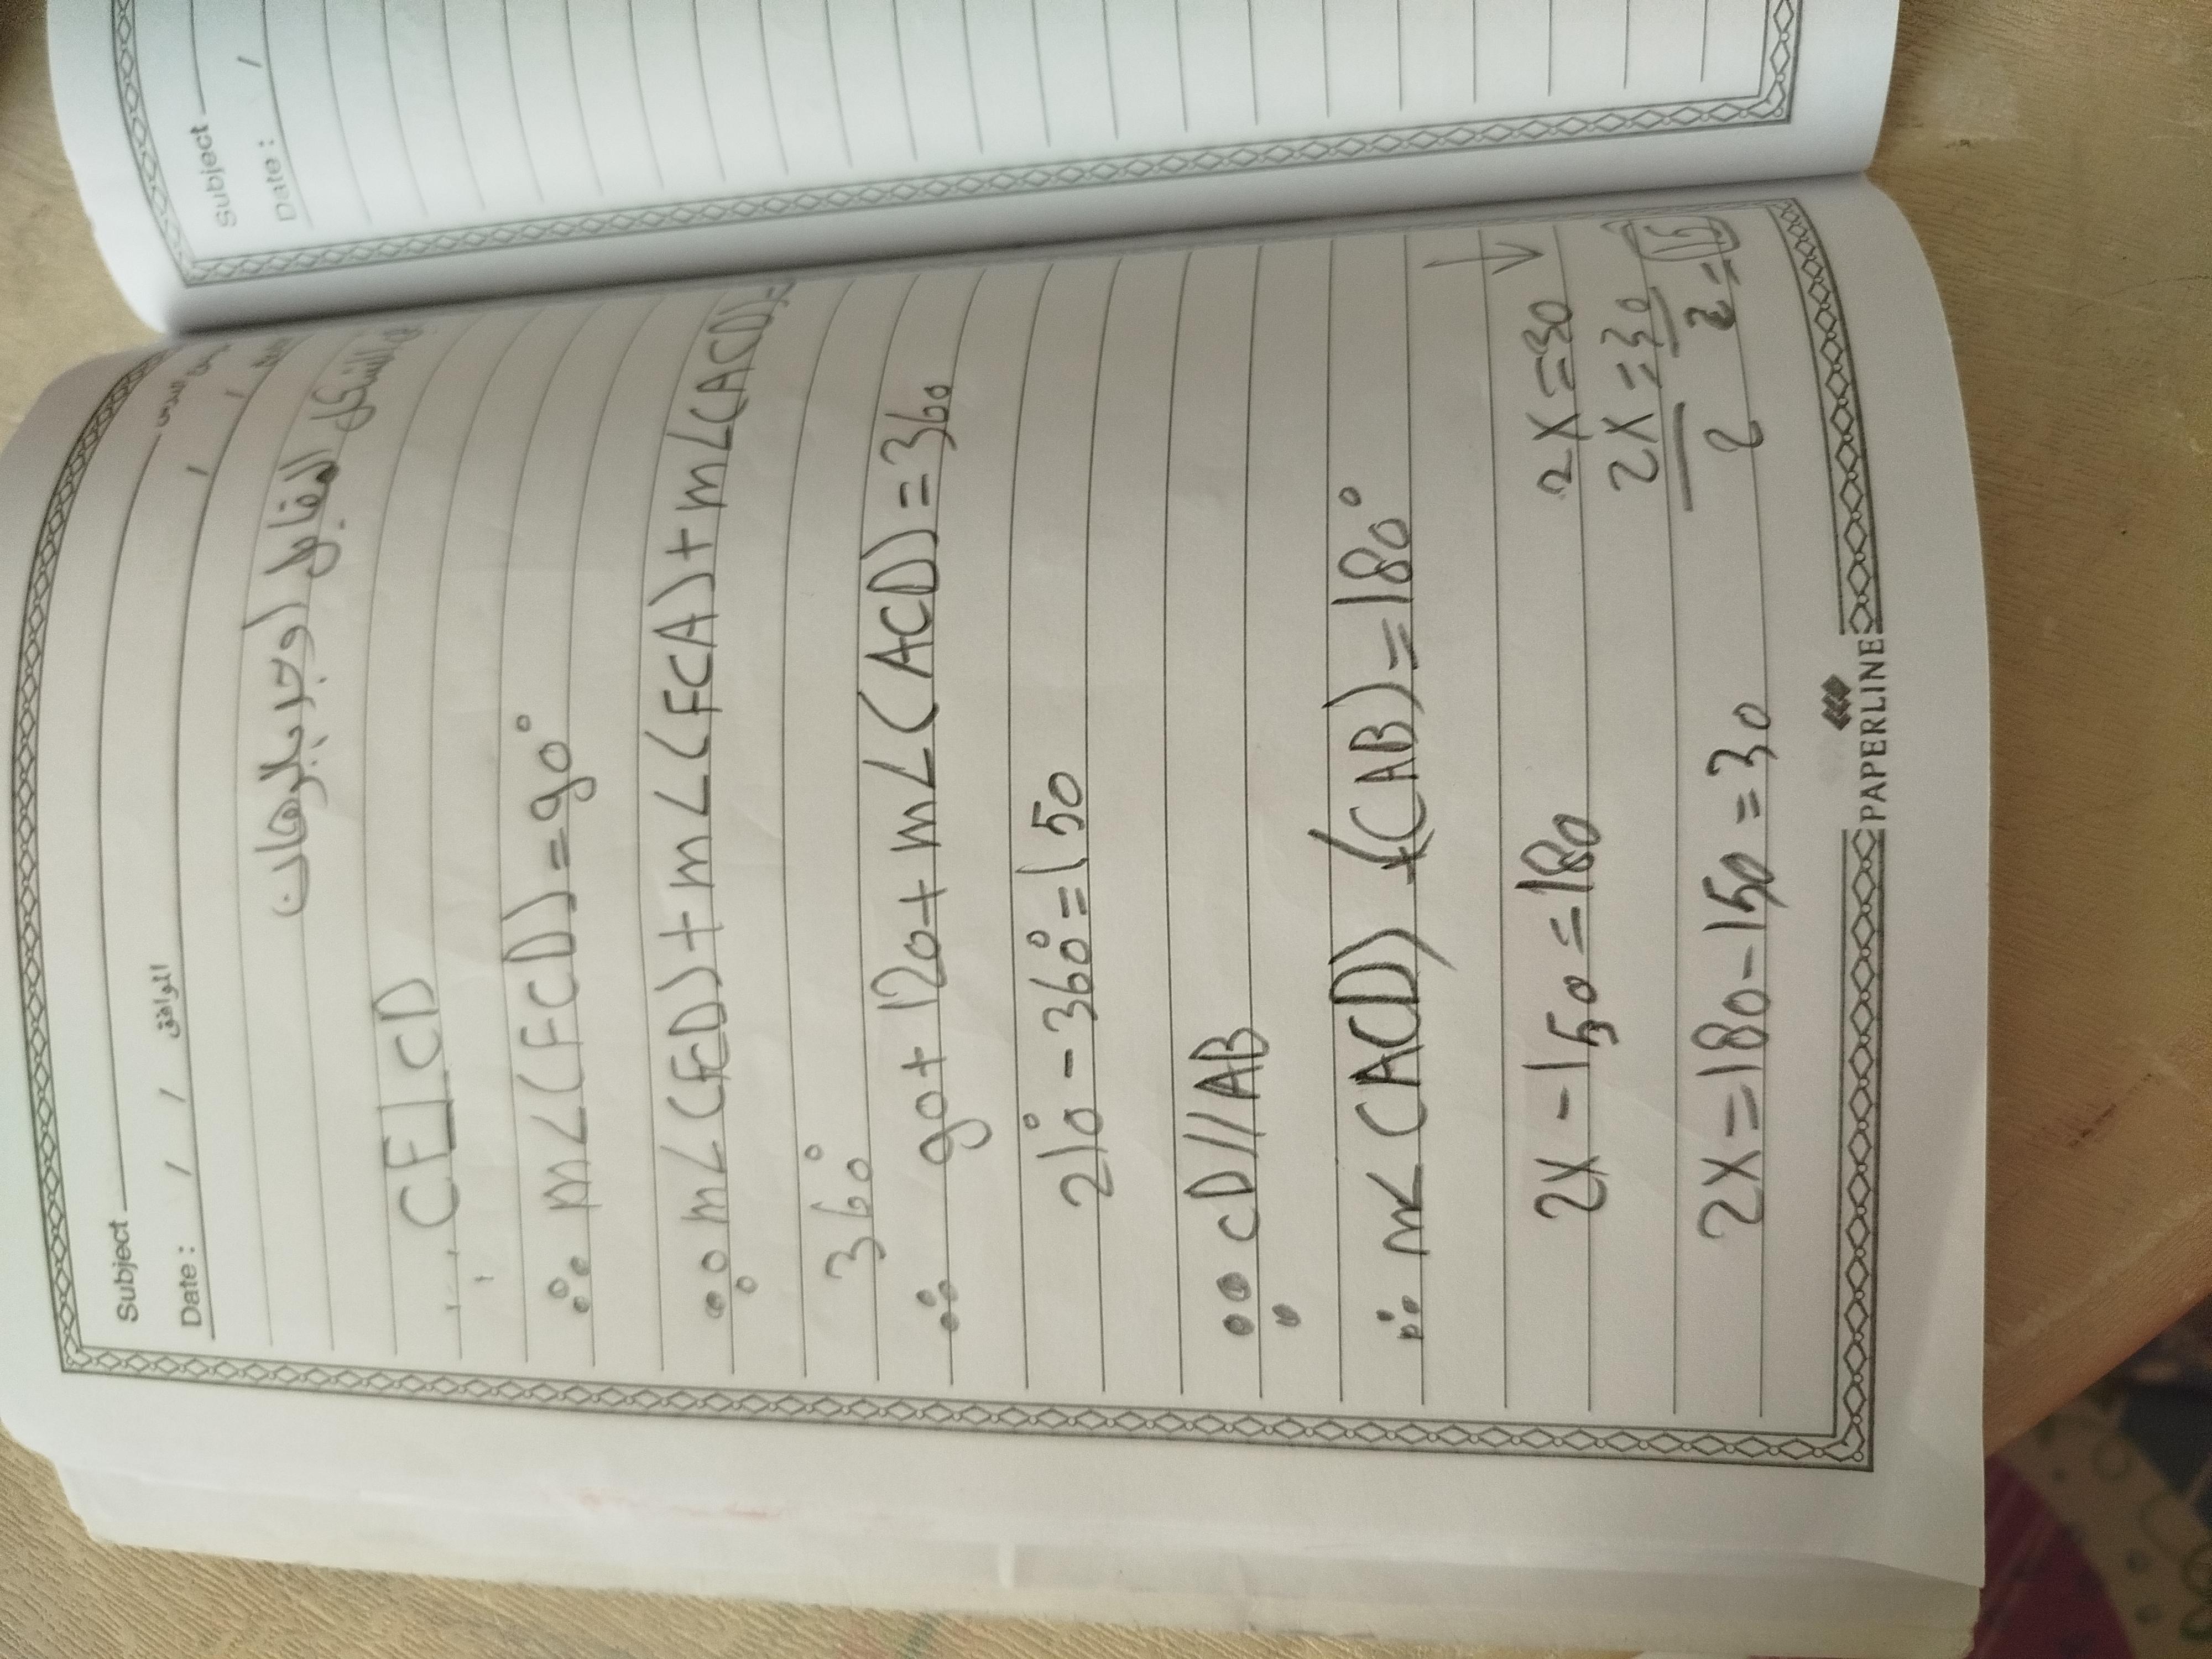 Subject
Date : / /
Subject
الموافق / /
Date : / /
فى الشكل المقابل اوجد بالبرهان
∵ CF ⊥ CD
∴ m∠(FCD)=90°
∵ m∠(FCD)+m∠(FCA)+m∠(ACD)=
360°
∴ 90+120+m∠(ACD)=360
210°-360°=150
∵ CD//AB
∴ m∠(ACD)+(CAB)=180°
2X-150=180
2X=180-150=30
2X=30
2X=30
2 2 =15
PAPERLINE